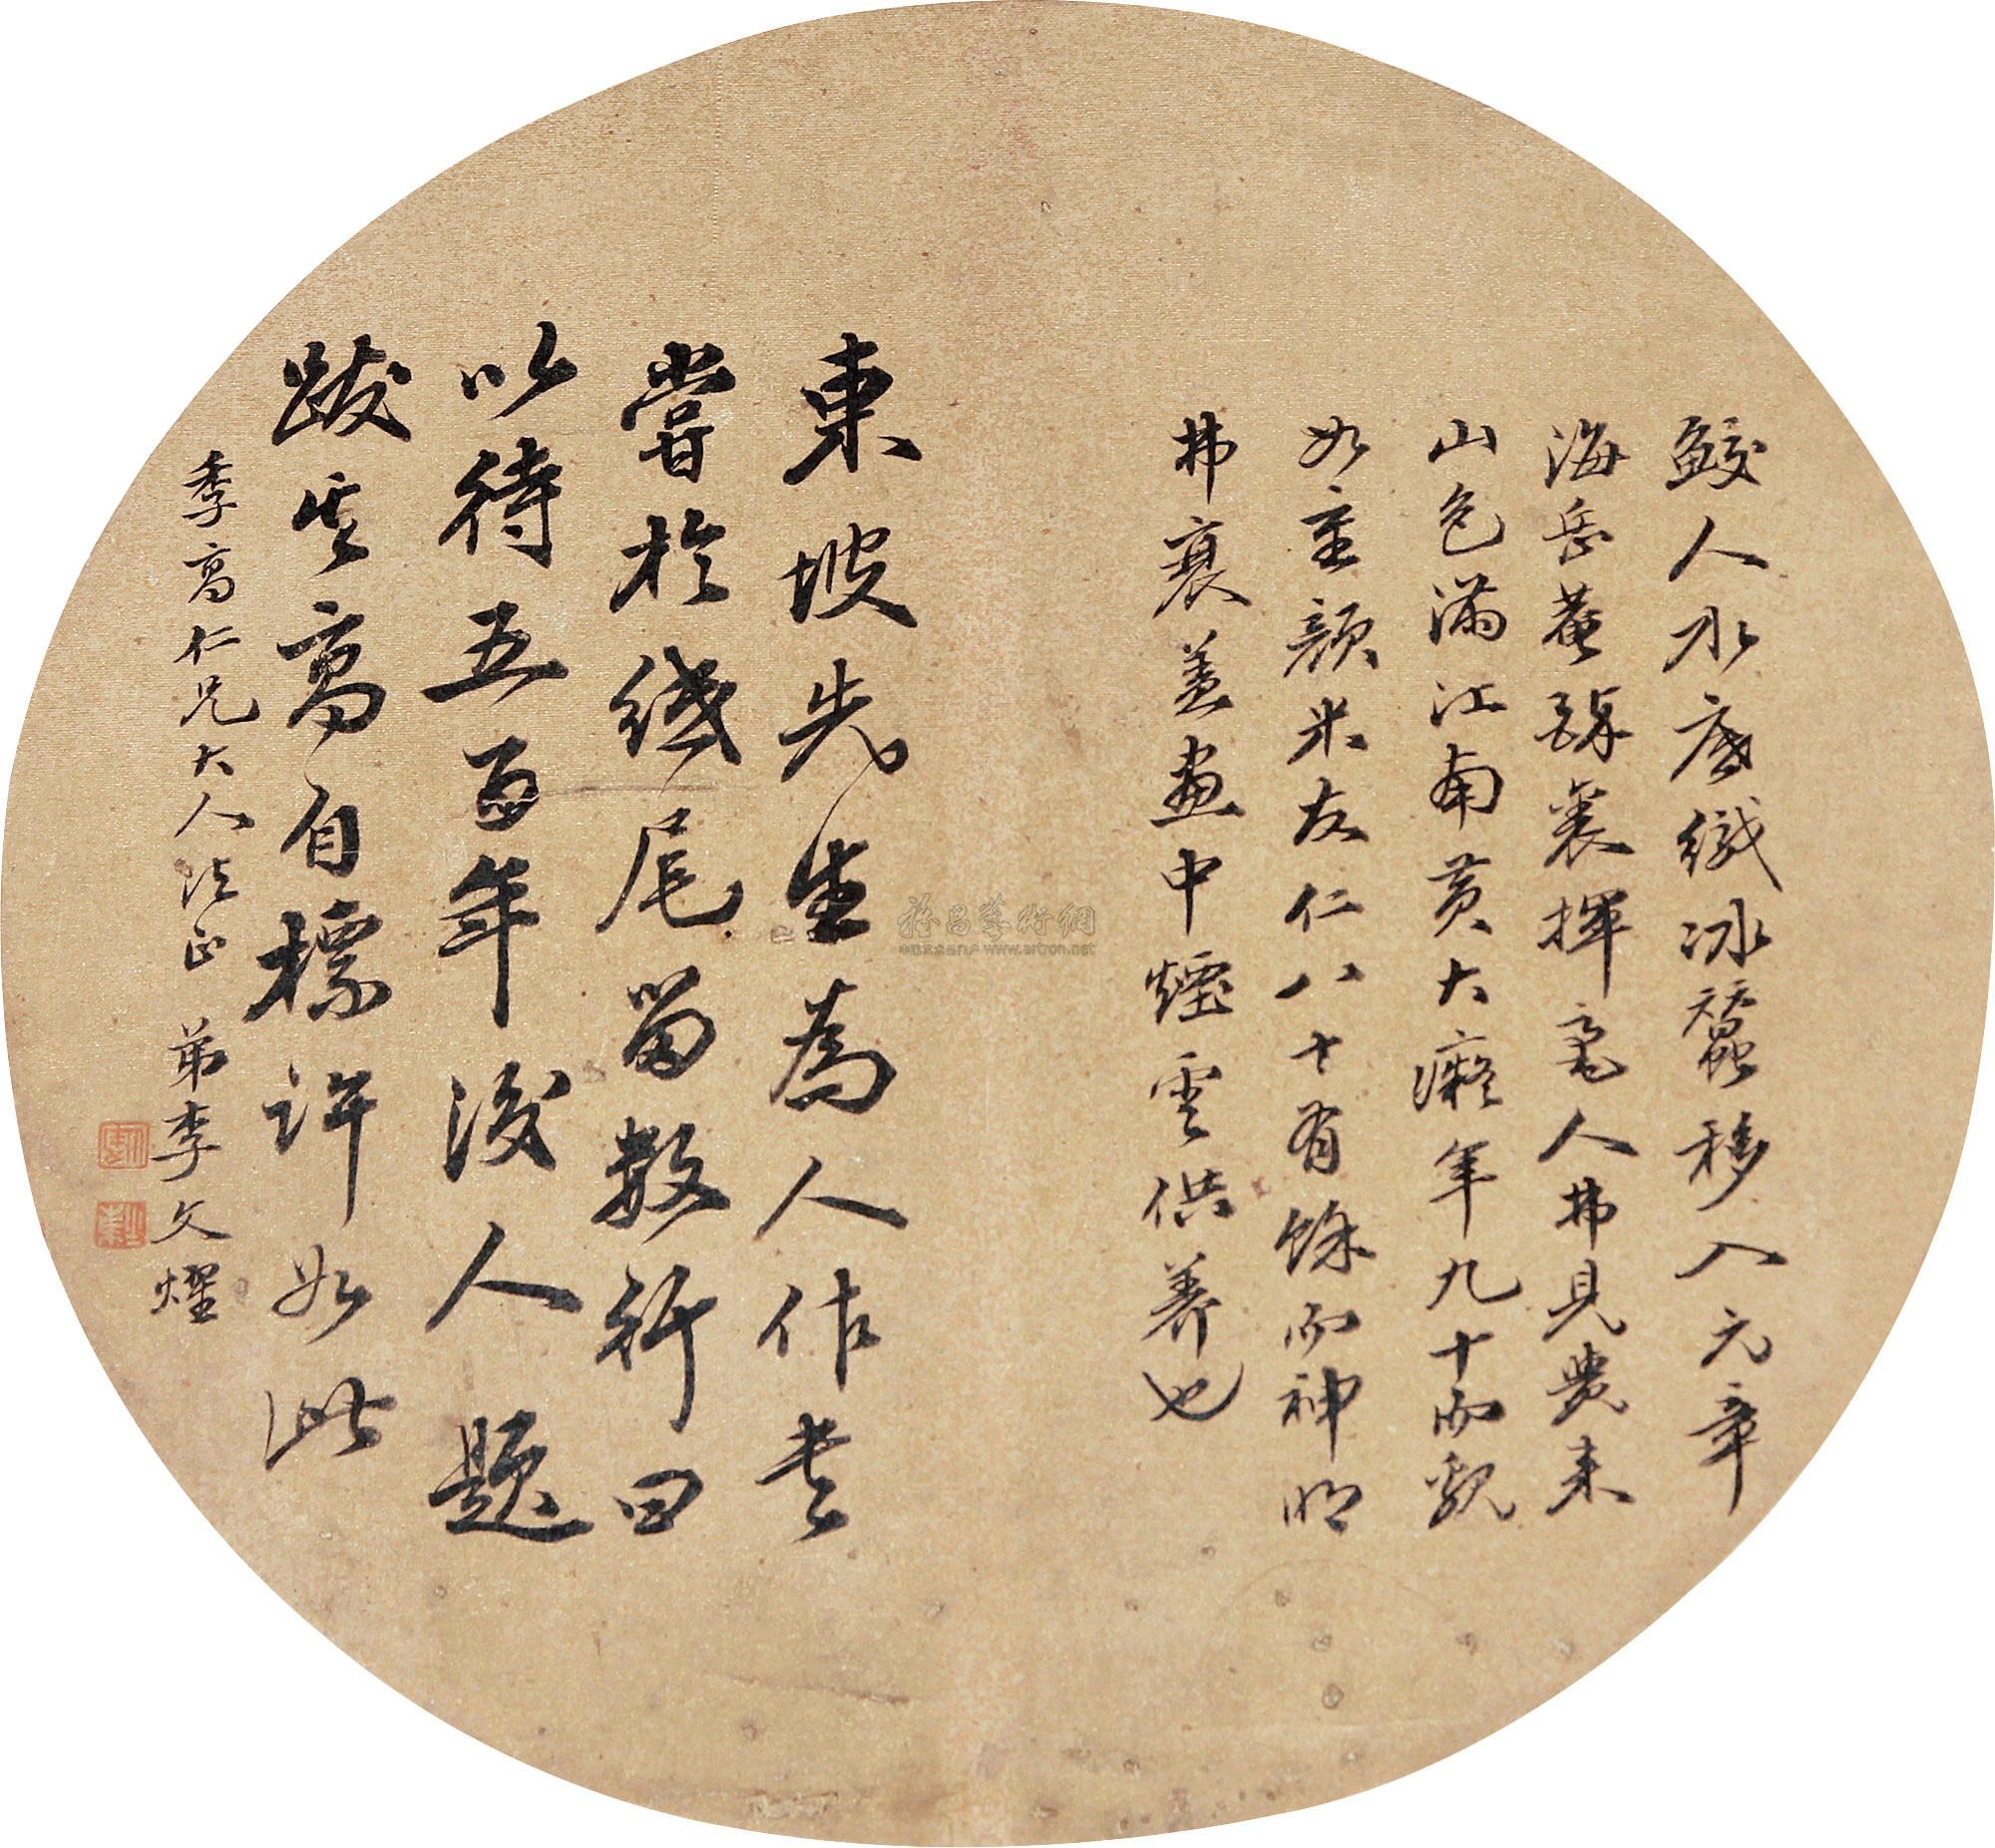 鮫人水底織冰蠶移入元章
海岳菴醉裏揮毫人弗見来
山色滿江南黃大癡年九十而貌
如童顏米友仁八十有餘而神明
弗衰蓋畫中煙雲供養也
東坡先生為人作書
嘗於尾留數行曰
以待五百年後人題
跋其高自標許如此
季高仁兄大人法正 弟李文燿
雅昌藝術網
www.artron.net